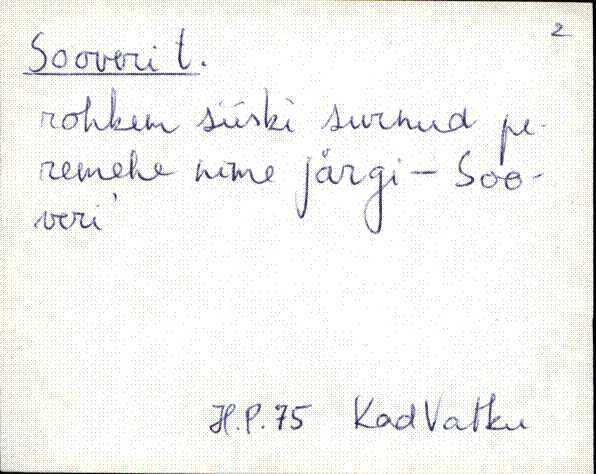 2
Sooveri t.
rohkem siiski surnud pe-
remehe nime järgi – Soo-
veri'
H.P. 75 Kad Vatku